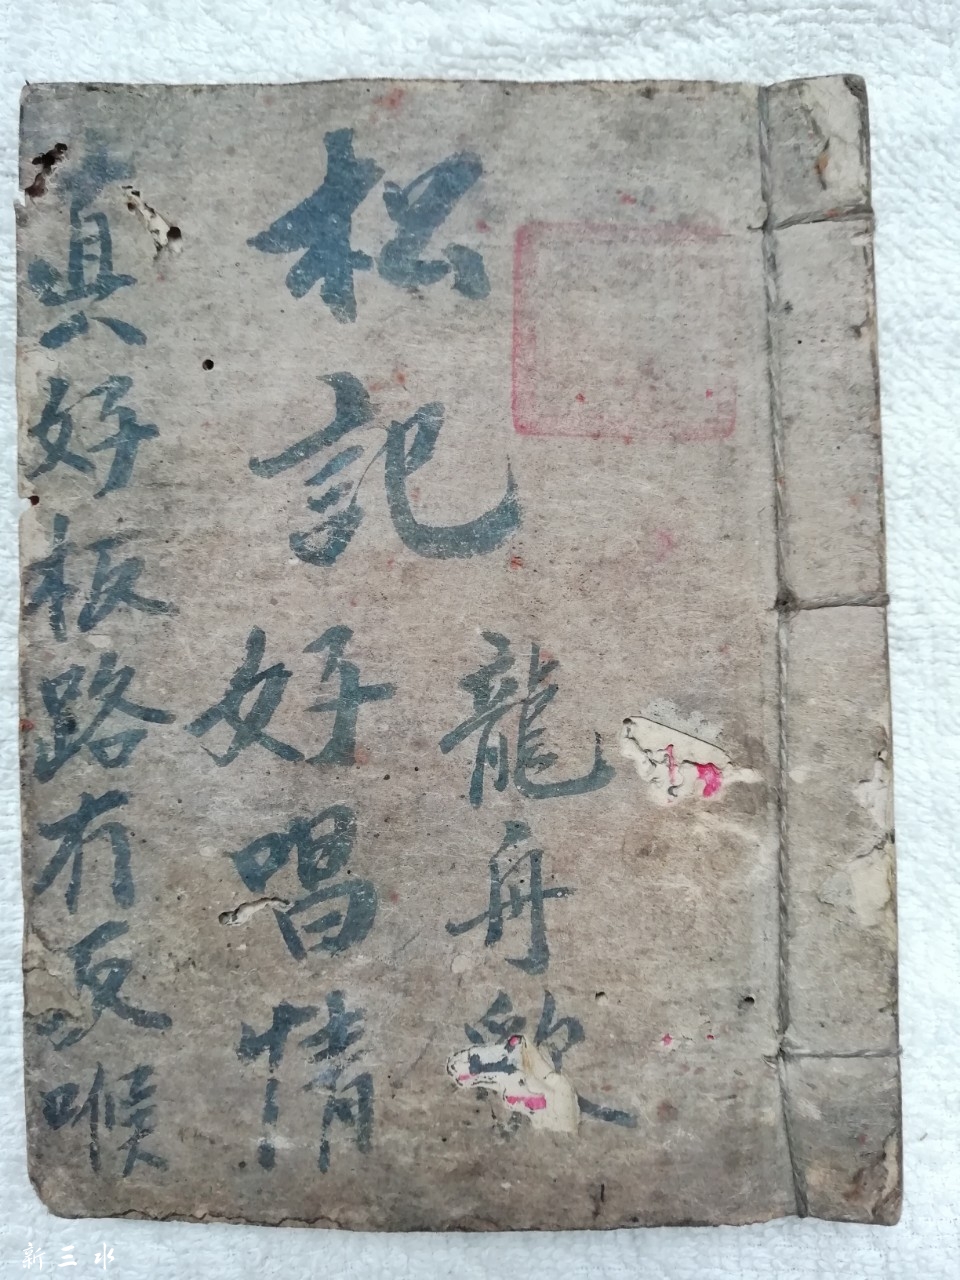 龍舟歌
松記
好唱情
真好板路有反喉
新三水